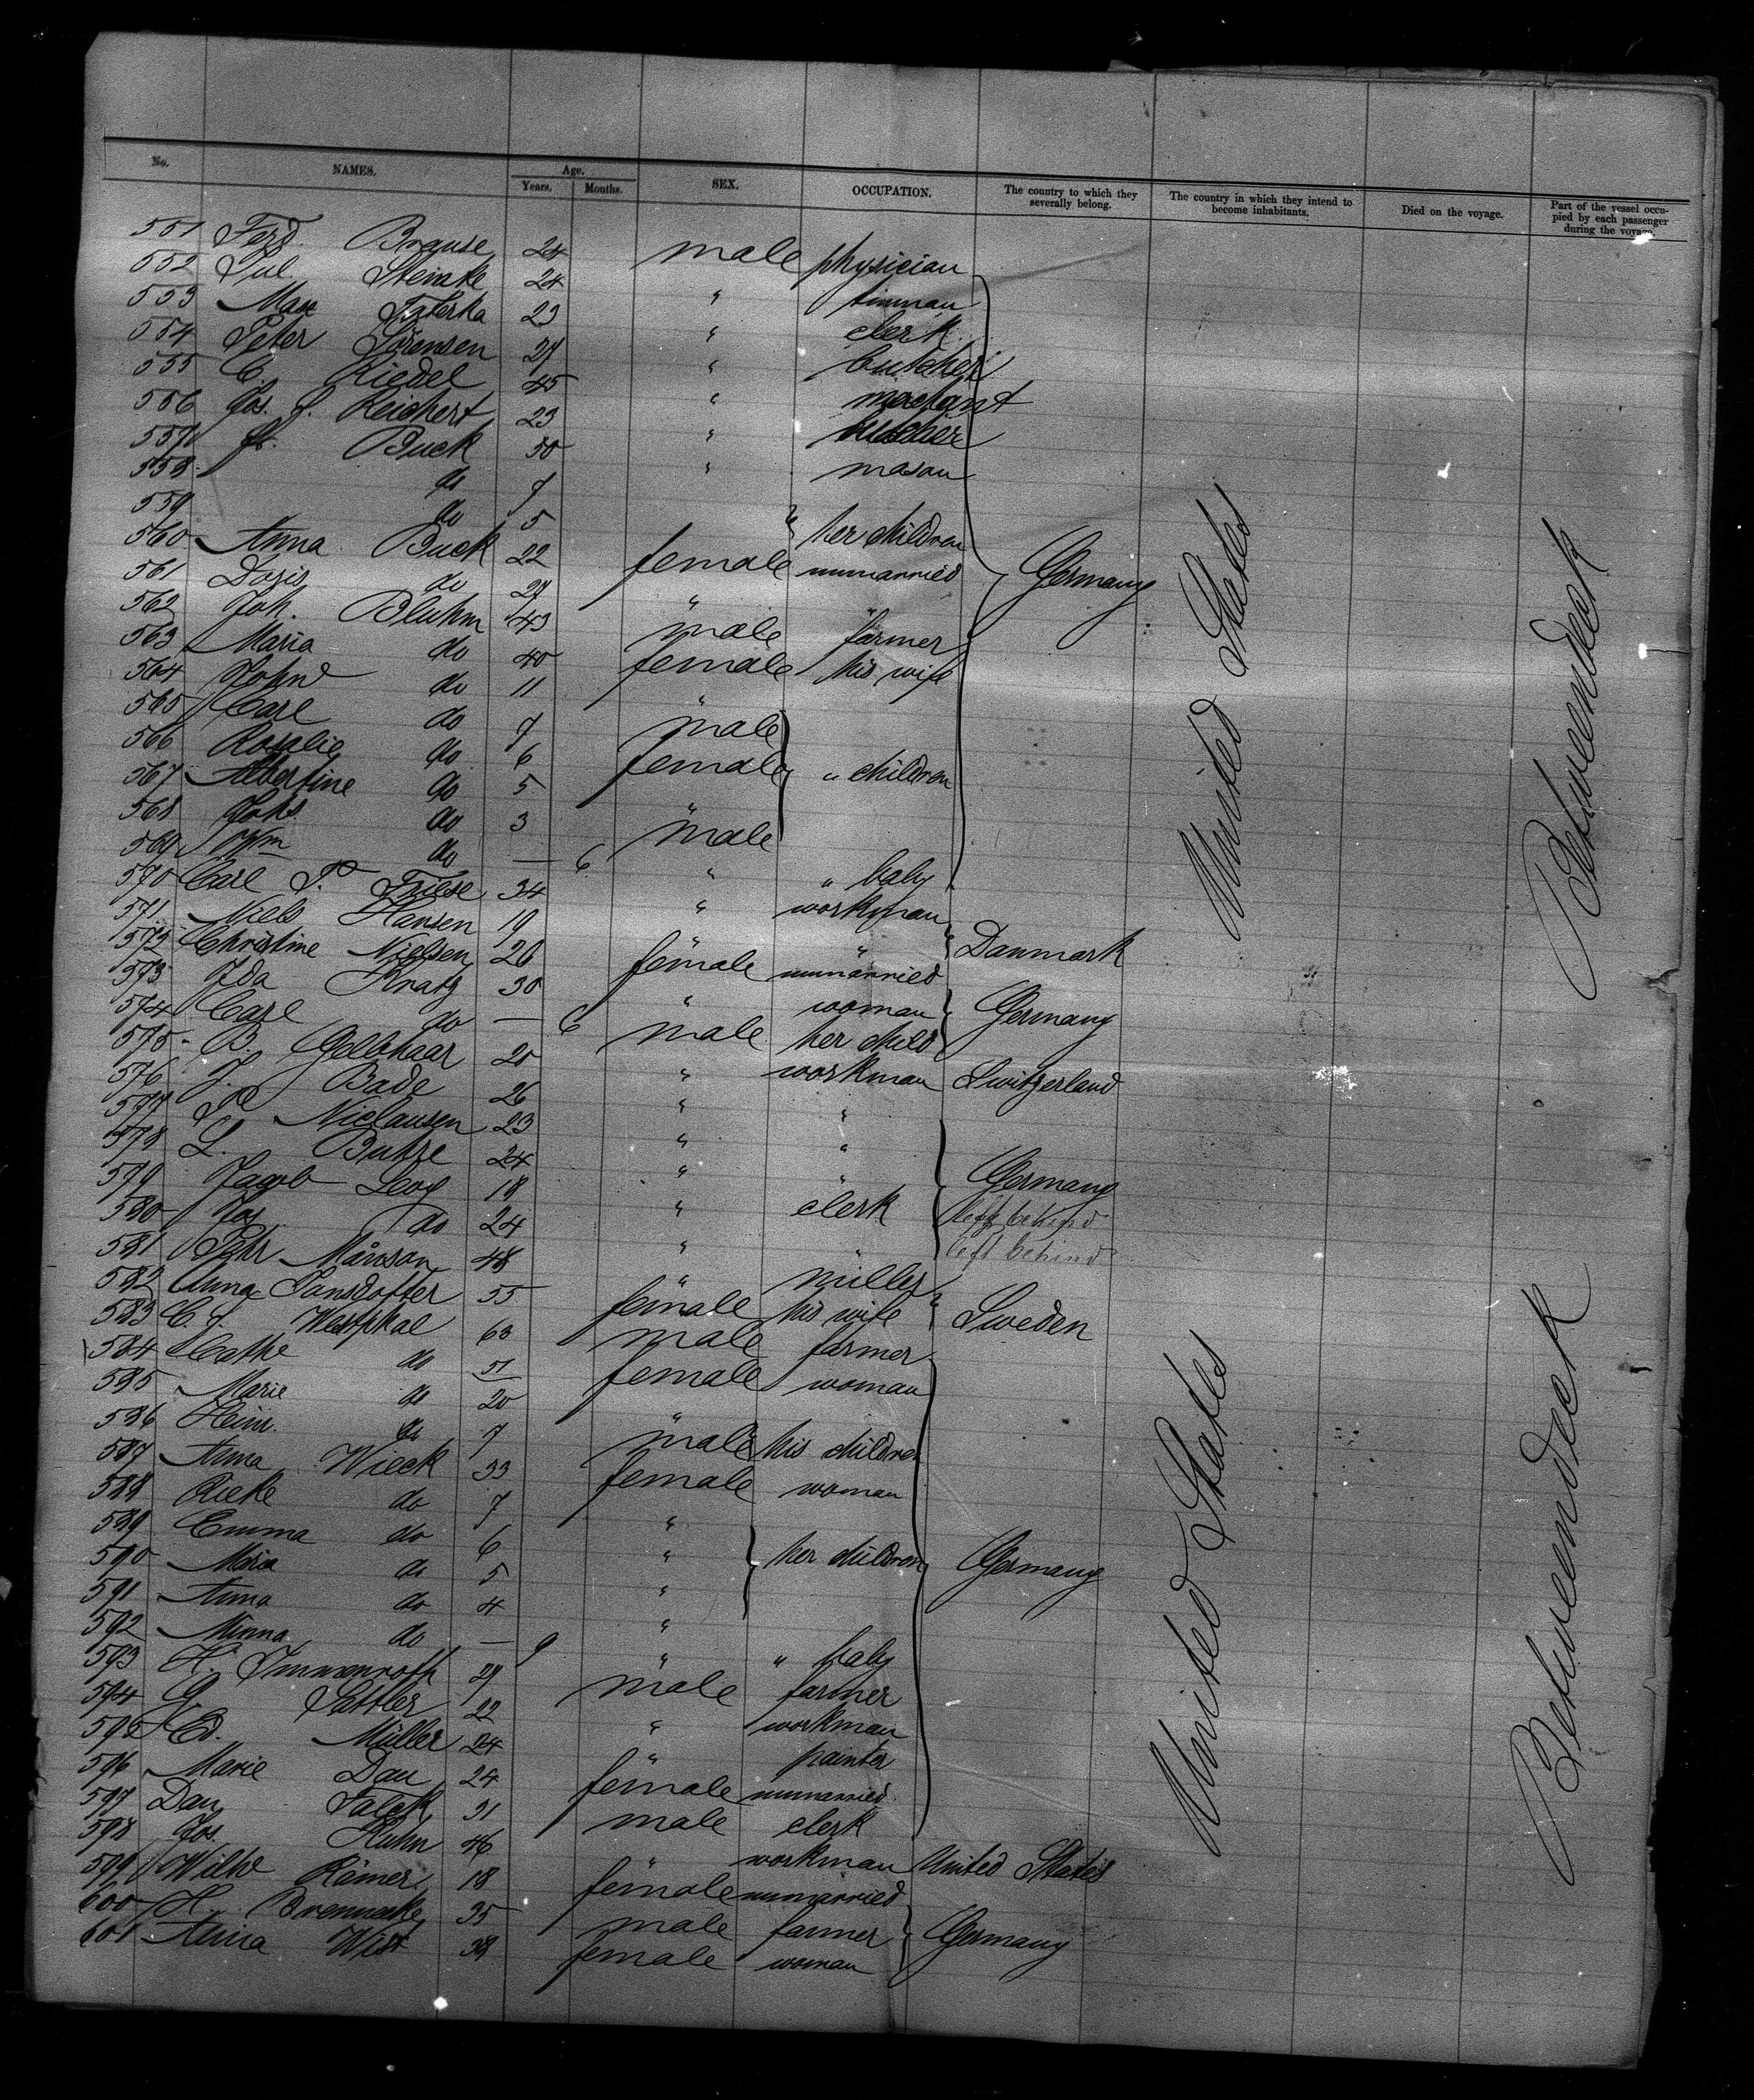 No. NAMES. Age. Years. Months. SEX. OCCUPATION. The country to which they severally belong. The country in which they intend to become inhabitants. Died on the voyage. Part of the vessel occupied by each passenger during the voyage.
551 Ferd. Brause 24 male physician
552 Jul. Steinke 24 " tinman
553 Max 23 " clerk
554 Peter Sörensen 27 " butcher
555 C. Riedel 45 " merchant
556 Jos. J. Reichert 23 " butcher
557 Fr. Buck 50 " mason
558 do 7
559 do 5 " her children
560 Anna Buck 22 female unmarried Germany
561 Doris do 27 " "
562 Joh. Bluhm 43 male farmer
563 Maria do 40 female his wife
564 John do 11 "
565 Carl do 7 male
566 Rosalie do 6 female " children
567 Albertine do 5 "
568 Johs. do 3 male
569 Wm do — 6 " " baby
570 Carl P. Friese 34 " workman
571 Niels Hansen 19 " " Danmark
572 Christine Nielsen 26 female unmarried
573 Ida Kratz 30 " woman Germany
574 Carl do — 6 male her child
575 B. Gelbhaar 20 " workman Switzerland
576 J. Bade 26 " "
577 P. Niclausen 23 " "
578 L. Buhse 24 " " Germany
579 Jacob Levy 18 " clerk left behind
580 Jos. do 24 " " left behind
581 Pehr Månson 48 " miller
582 Anna Jansdotter 55 female his wife Sweden
583 C. J. Westphal 63 male farmer
584 Cathe do 51 female woman
585 Marie do 20 "
586 Heinr. do 7 male his children
587 Anna Wieck 33 female woman
588 Rieke do 7 "
589 Emma do 6 " her children Germany
590 Maria do 5 "
591 Anna do 4 "
592 Minna do — 9 " " baby
593 H. Immenroth 27 male farmer
594 G. Sattler 22 " workman
595 Ed. Müller 24 " painter
596 Marie Dau 24 female unmarried
597 Dan. Falck 31 male clerk
598 Jos. Kuhn 46 " workman United States
599 Wilhe Römer 18 female unmarried
600 H. Brennecke 35 male farmer Germany
601 Anna Wist 38 female woman
United States
Betweendeck
United States
Betweendeck